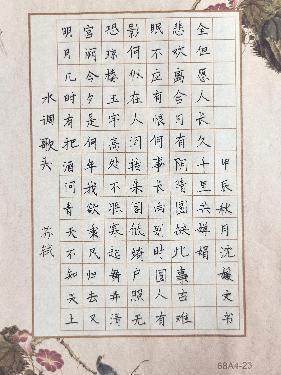 水调歌头 苏轼
明月几时有把酒问青天不知天上
宫阙今夕是何年我欲乘风归去又
恐琼楼玉宇高处不胜寒起舞弄清
影何似在人间转朱阁低绮户照无
眠不应有恨何事长向别时圆人有
悲欢离合月有阴晴圆缺此事古难
全但愿人长久千里共婵娟
甲辰秋月沈媛文书
68A4-23